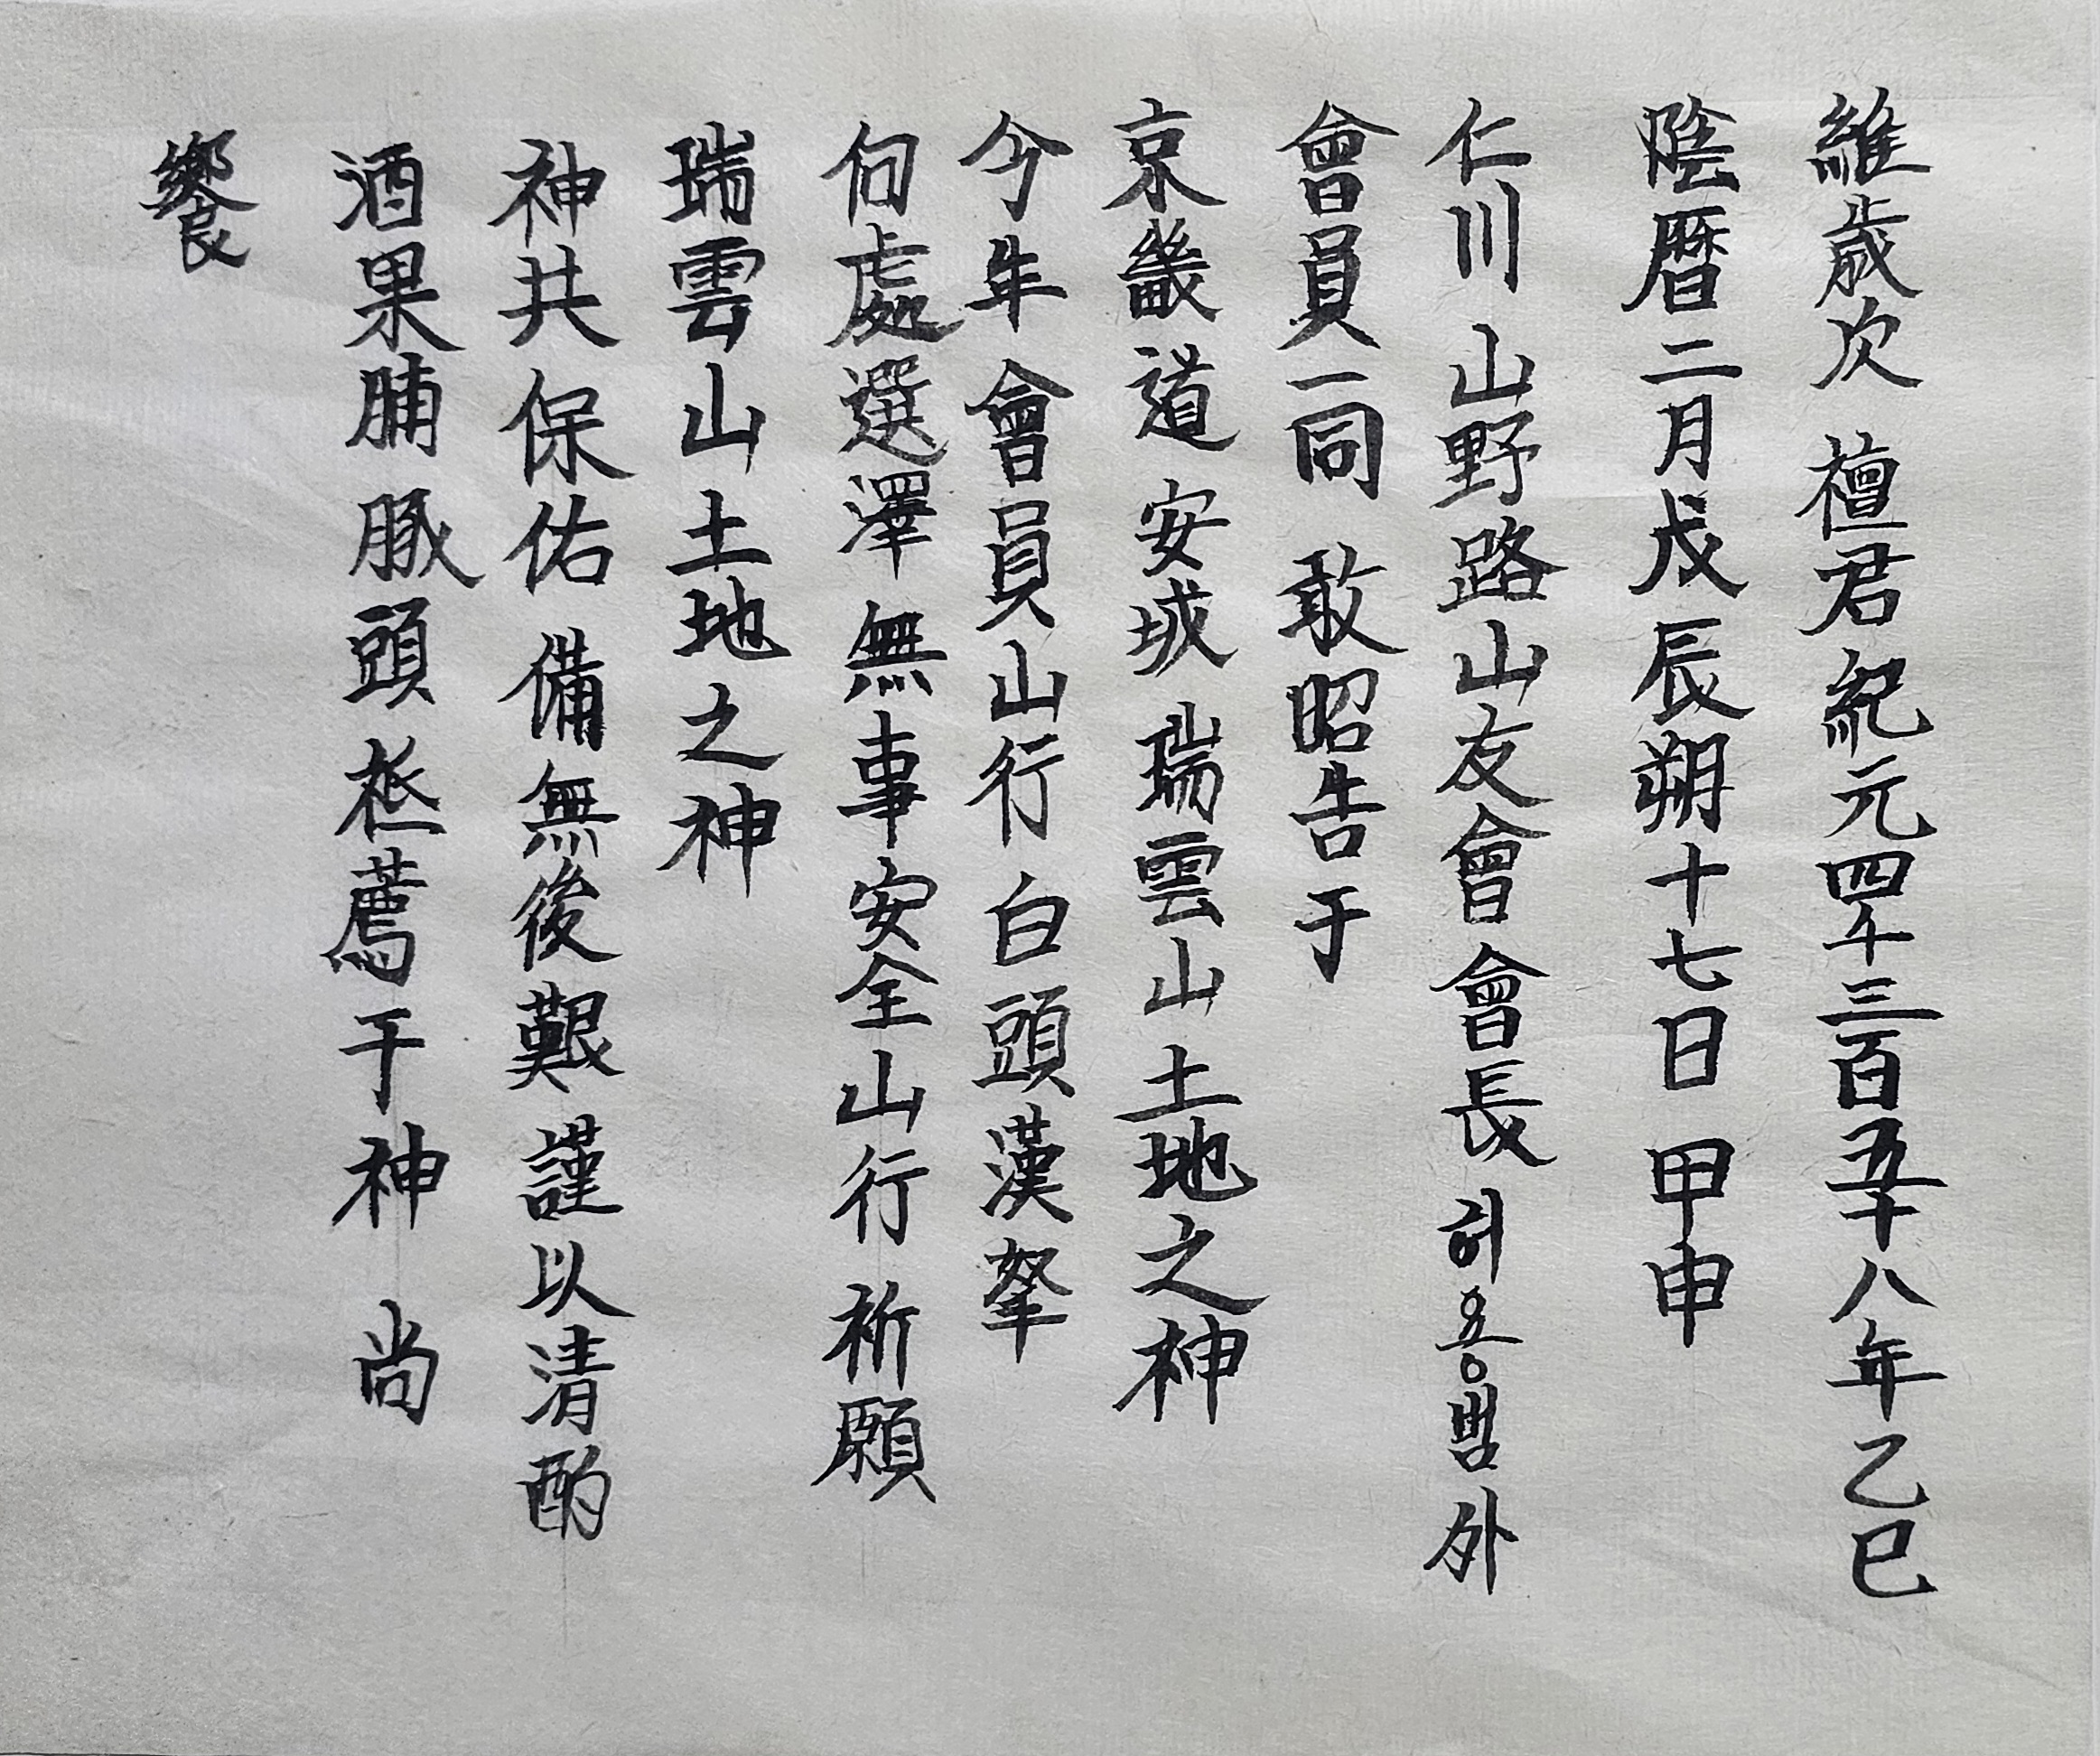 維歲次 檀君紀元四千三百五十八年乙巳
陰曆二月戊辰朔十七日 甲申
仁川 山野路山友會 會長 허용범 外
會員一同 敢昭告于
京畿道 安城 瑞雲山 土地之神
今年 會員山行 白頭漢拏
何處選擇 無事安全山行 祈願
瑞雲山土地之神
神共保佑 備無後艱 謹以清酌
酒果脯 豚頭 祗薦于神 尚
饗